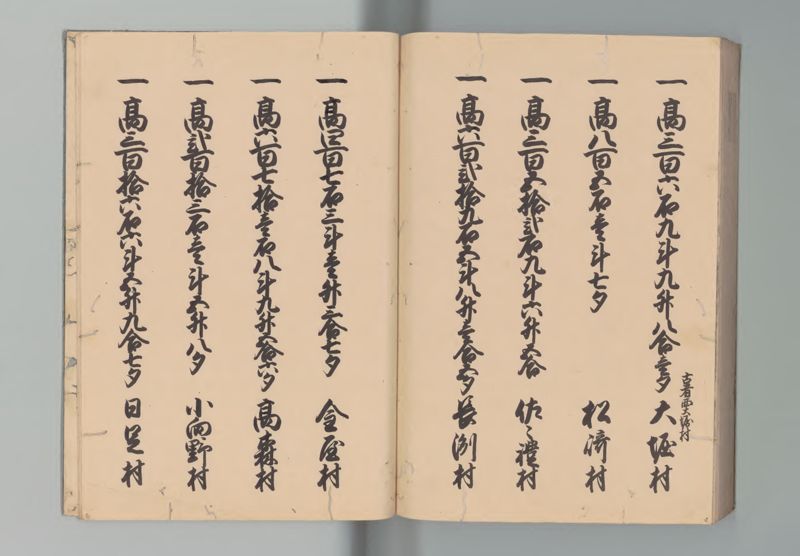 一高三百六石九斗九升八合壱夕 大堀村
古者西大堀村
一高八百五石壱斗七夕 松済村
一高三百五拾弐石九斗六升五合 佐々禮村
一高六百弐拾九石五斗八升壱合五夕 長渕村
一高四百七石三斗壱升三合七夕 金屋村
一高六百七拾壱石八斗九升五合六夕 高森村
一高弐百拾三石壱斗五升八夕 小向野村
一高三百拾六石六斗五升九合七夕 日足村